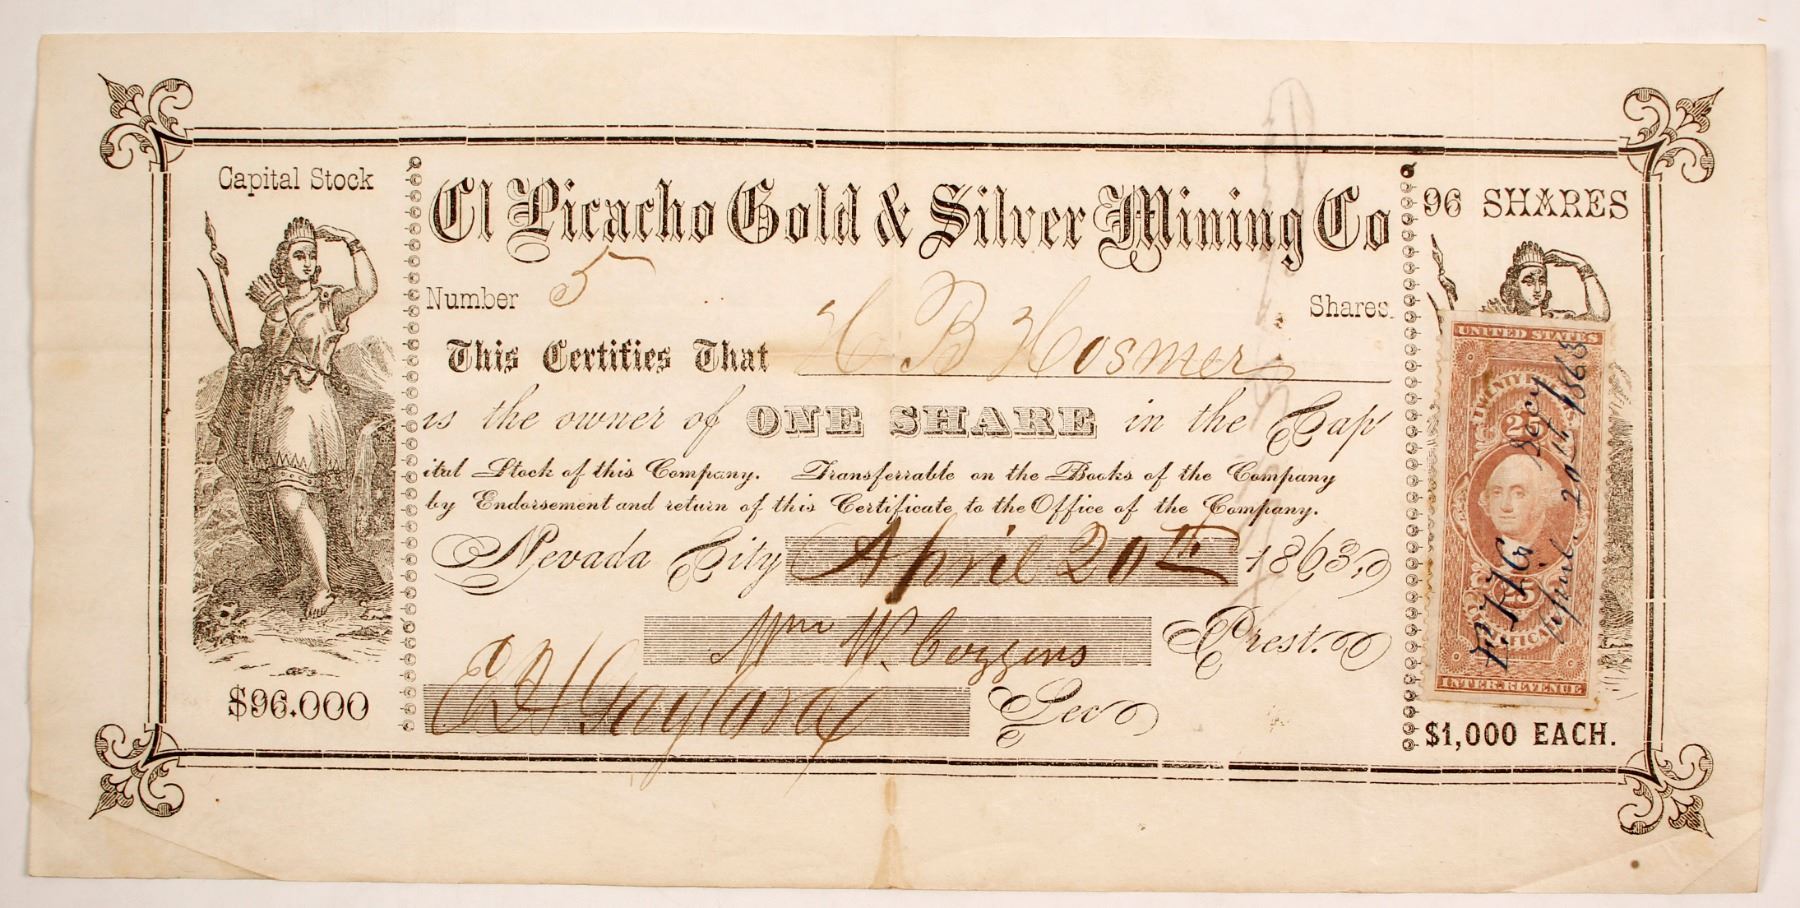 Capital Stock
$96.000
El Picacho Gold & Silver Mining Co
Number 5 Shares.
This Certifies That H B Hosmer
is the owner of ONE SHARE in the Cap
ital Stock of this Company. Transferrable on the Books of the Company
by Endorsement and return of this Certificate to the Office of the Company.
Nevada City April 20th 1863,
Wm W. Coggins Prest.
Gaylord Sec
96 SHARES
UNITED STATES
25
25
INTER. REVENUE
Secy
April. 20th 1863
$1,000 EACH.